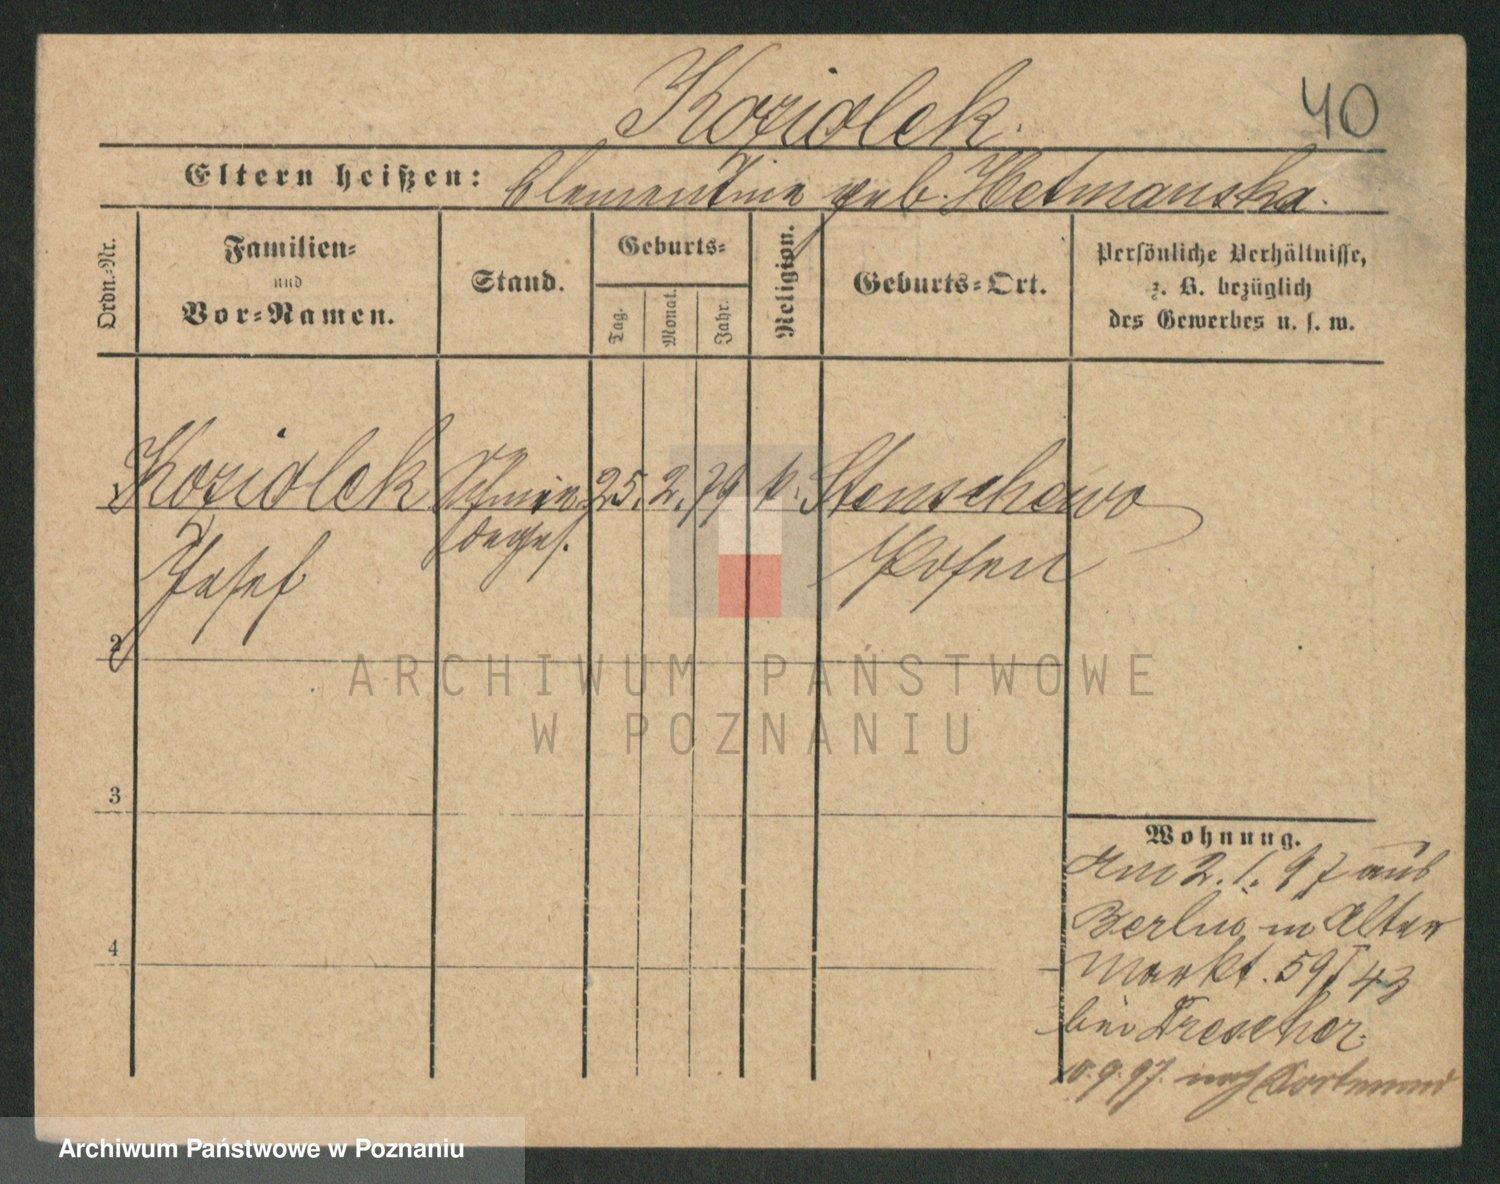 40
Koziolek.
Eltern heißen: Clementine geb. Hetmanska.
Ordn.-Nr.
Familien-
und
Vor-Namen.
Stand.
Geburts-
Tag.
Monat.
Jahr.
Religion.
Geburts-Ort.
Persönliche Verhältnisse,
z. B. bezüglich
des Gewerbes u. s. w.
Koziolek
25. 2. 79 k. Stenschewo
Josef
Posen
2
3
4
Wohnung.
Am 2. 1. 97 aus
Berlin in Alter
Markt. 59 I 43
bei Drescher.
10.9.97. nach Dortmund
ARCHIWUM PAŃSTWOWE
W POZNANIU
Archiwum Państwowe w Poznaniu